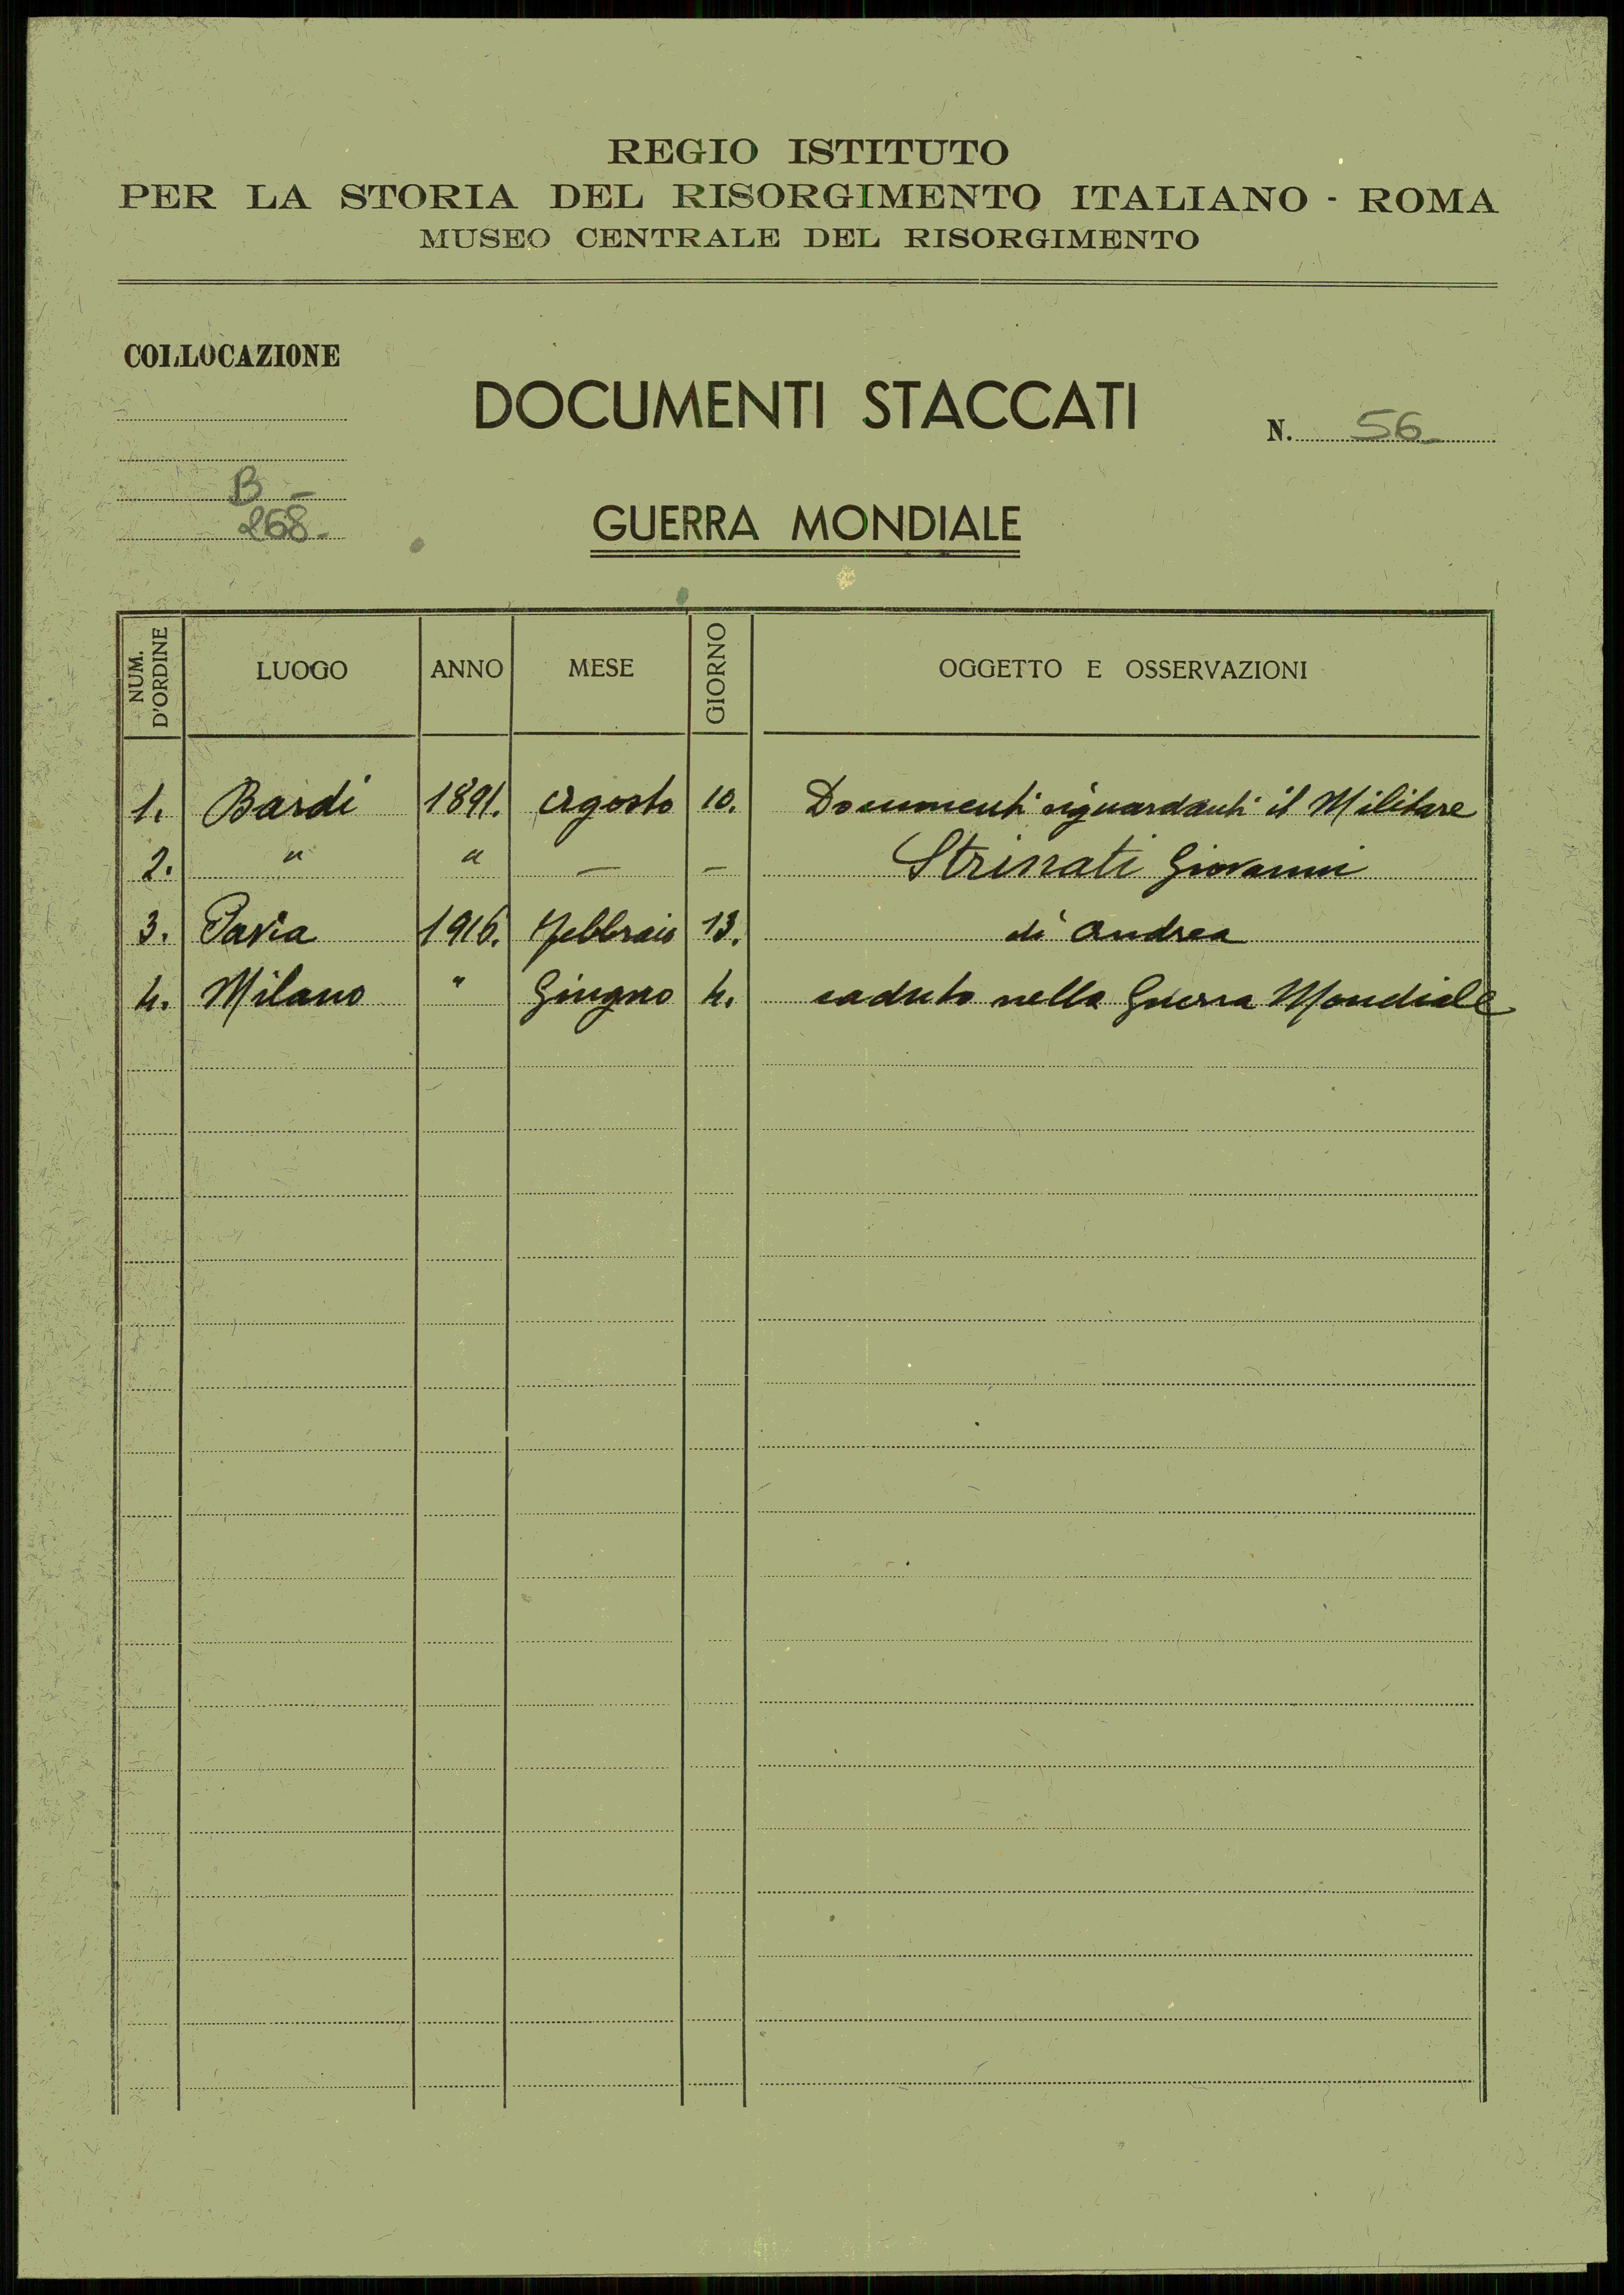 REGIO ISTITUTO
PER LA STORIA DEL RISORGIMENTO ITALIANO - ROMA
MUSEO CENTRALE DEL RISORGIMENTO
COLLOCAZIONE
DOCUMENTI STACCATI
N. 56
B -
268.
GUERRA MONDIALE
NUM. D'ORDINE LUOGO ANNO MESE GIORNO OGGETTO E OSSERVAZIONI
1. Bardi 1891. Agosto 10. Documenti riguardanti il Militare
2. " " — — Strinati Giovanni
3. Pavia 1916. Febbraio 13. di Andrea
4. Milano " Giugno 4. caduto nella Guerra Mondiale